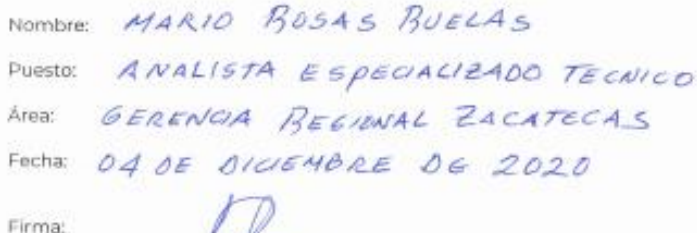 Nombre: MARIO ROSAS RUELAS
Puesto: ANALISTA ESPECIALIZADO TECNICO
Área: GERENCIA REGIONAL ZACATECAS
Fecha: 04 DE DICIEMBRE DE 2020
Firma: